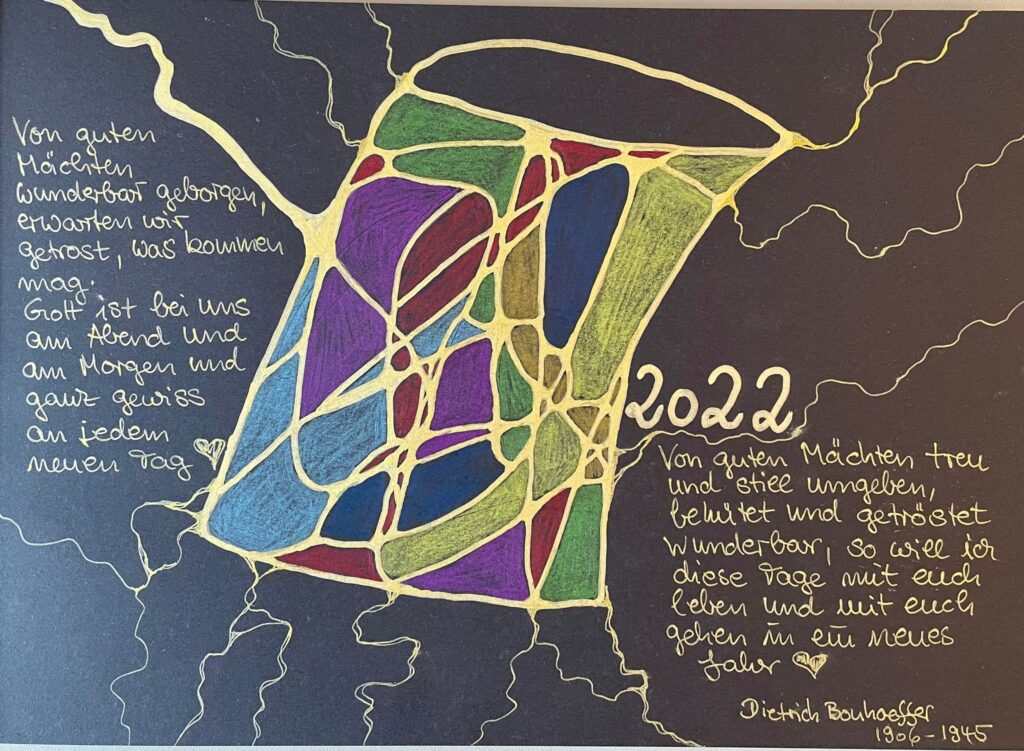 Von guten
Mächten
wunderbar geborgen,
erwarten wir
getrost, was kommen
mag.
Gott ist bei uns
am Abend und
am Morgen und
ganz gewiss
an jedem
neuen Tag
2022
Von guten Mächten treu
und still umgeben,
behütet und getröstet
wunderbar, so will ich
diese Tage mit euch
leben und mit euch
gehen in ein neues
Jahr
Dietrich Bonhoeffer
1906-1945